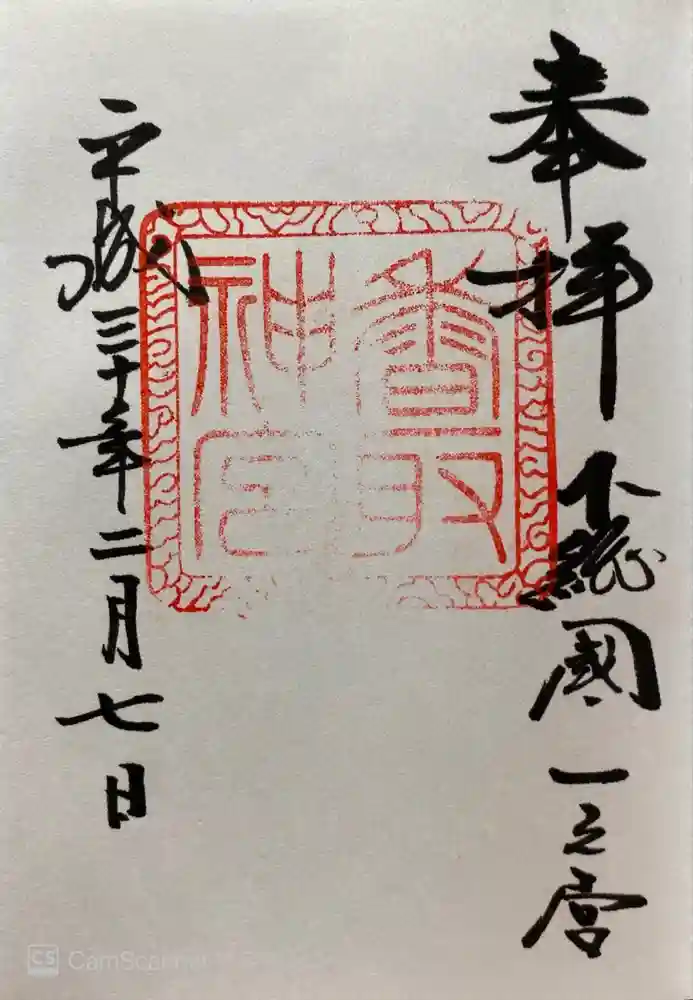 奉拝
下総國一之宮
香取
神宮
平成三十年二月七日
CS CamScanner